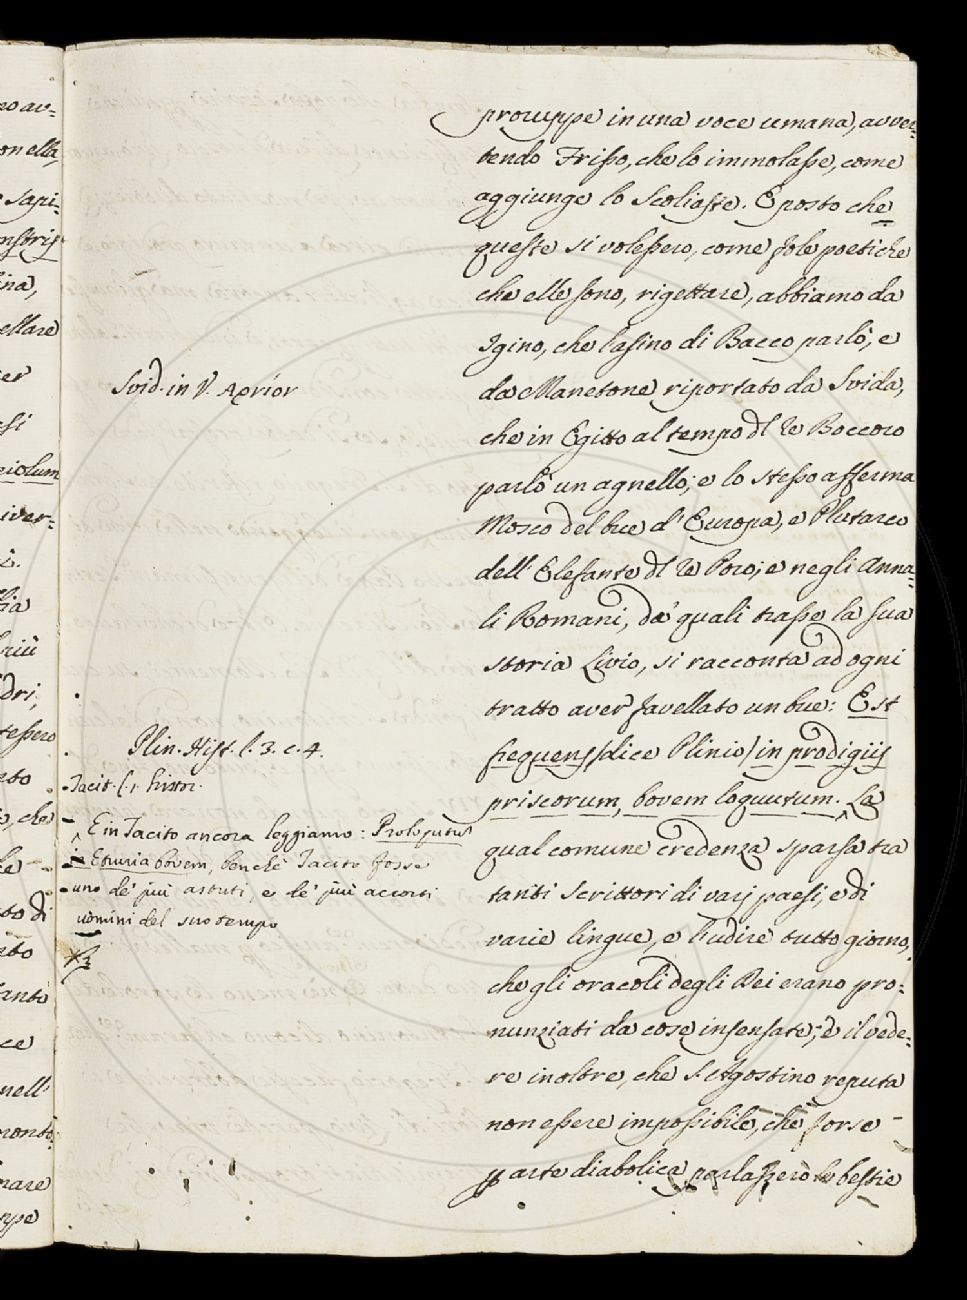 proruppe in una voce umana, avver-
tendo Frisso, che lo immolasse, come
aggiunge lo Scoliaste. E posto che
queste si volessero, come fole poetiche
che elle sono, rigettare, abbiamo da
Igino, che l'asino di Bacco parlò, e
da Manetone riportato da Svida,
che in Egitto al tempo dl Re Boccoro
parlò un agnello; e lo stesso afferma
Mosco del bue d'Europa, e Plutarco
dell'Elefante dl Re Poro; e negli Anna-
li Romani, da' quali trasse la sua
storia Livio, si racconta ad ogni
tratto aver favellato un bue: Est
frequens (dice Plinio) in prodigijs
priscorum, bovem loquutum. La
qual comune credenza sparsa tra
tanti Scrittori di varj paesi, e di
varie lingue, e l'udire tutto giorno,
che gli oracoli degli Dei erano pro-
nunziati da cose insensate; e il vede-
re inoltre, che S. Agostino reputa
non essere impossibile, che forse
p arte diabolica parlassero le bestie
Svid. in V. Αρνίον
Plin. Hist. l. 3. c. 4.
Tacit. l. 1. histor.
E in Tacito ancora leggiamo: Proloquutus
in Etruria bovem, benchè Tacito fosse
uno de' più astuti, e de' più accorti
uomini del suo tempo
no av-
on ella,
sapi-
ina,
ellare
er
si
iolum
iver-
dri,
tessero
che
to di
anto
ce
nell'
nare